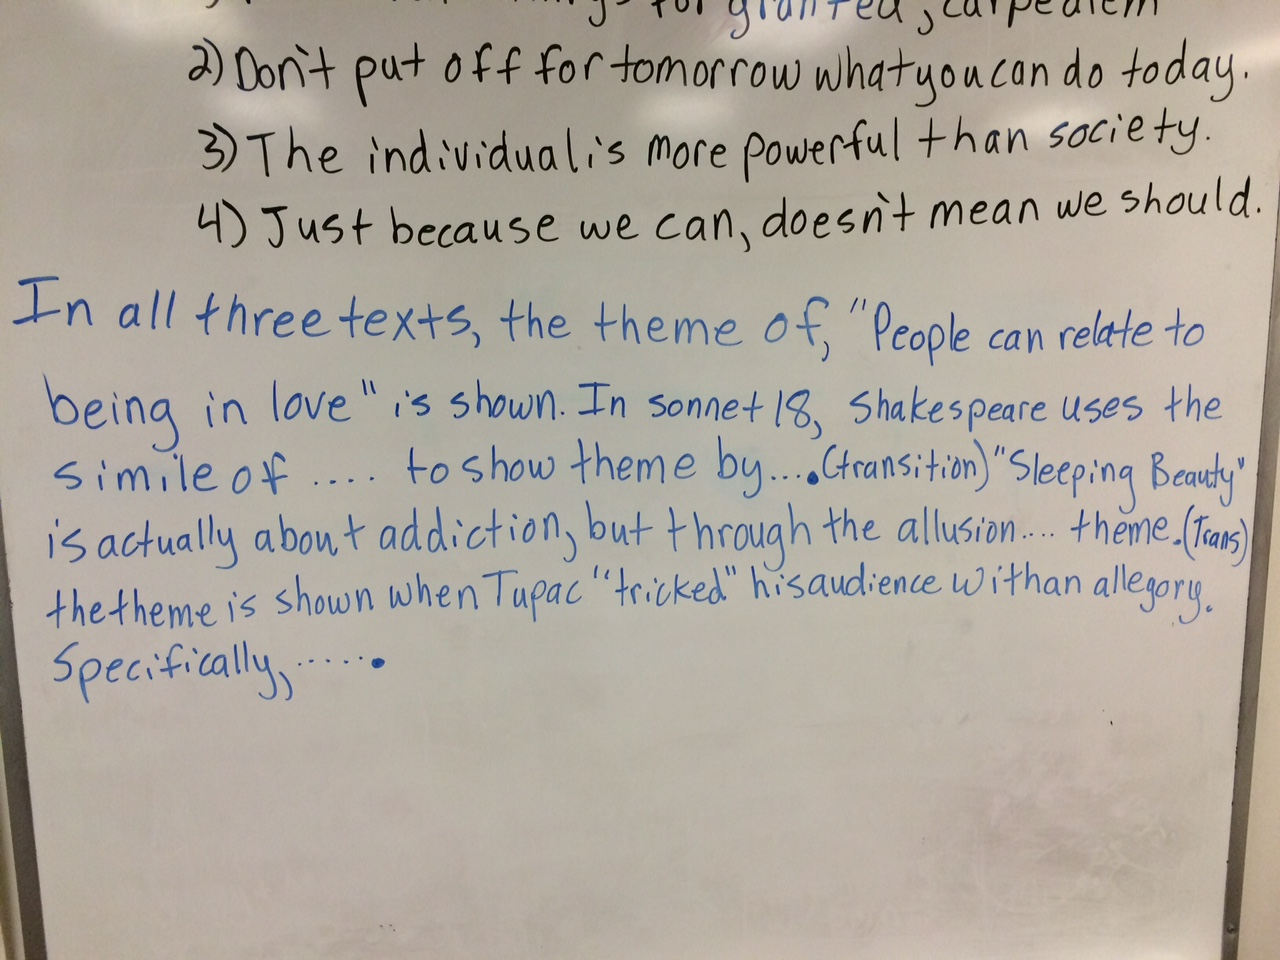 for granted, carpediem
2) Don't put off for tomorrow what you can do today.
3) The individual is more powerful than society.
4) Just because we can, doesn't mean we should.
In all three texts, the theme of, "People can relate to
being in love" is shown. In sonnet 18, Shakespeare uses the
simile of .... to show theme by.... (transition) "Sleeping Beauty"
is actually about addiction, but through the allusion.... theme. (Trans)
the theme is shown when Tupac "tricked" his audience with an allegory.
Specifically, ......